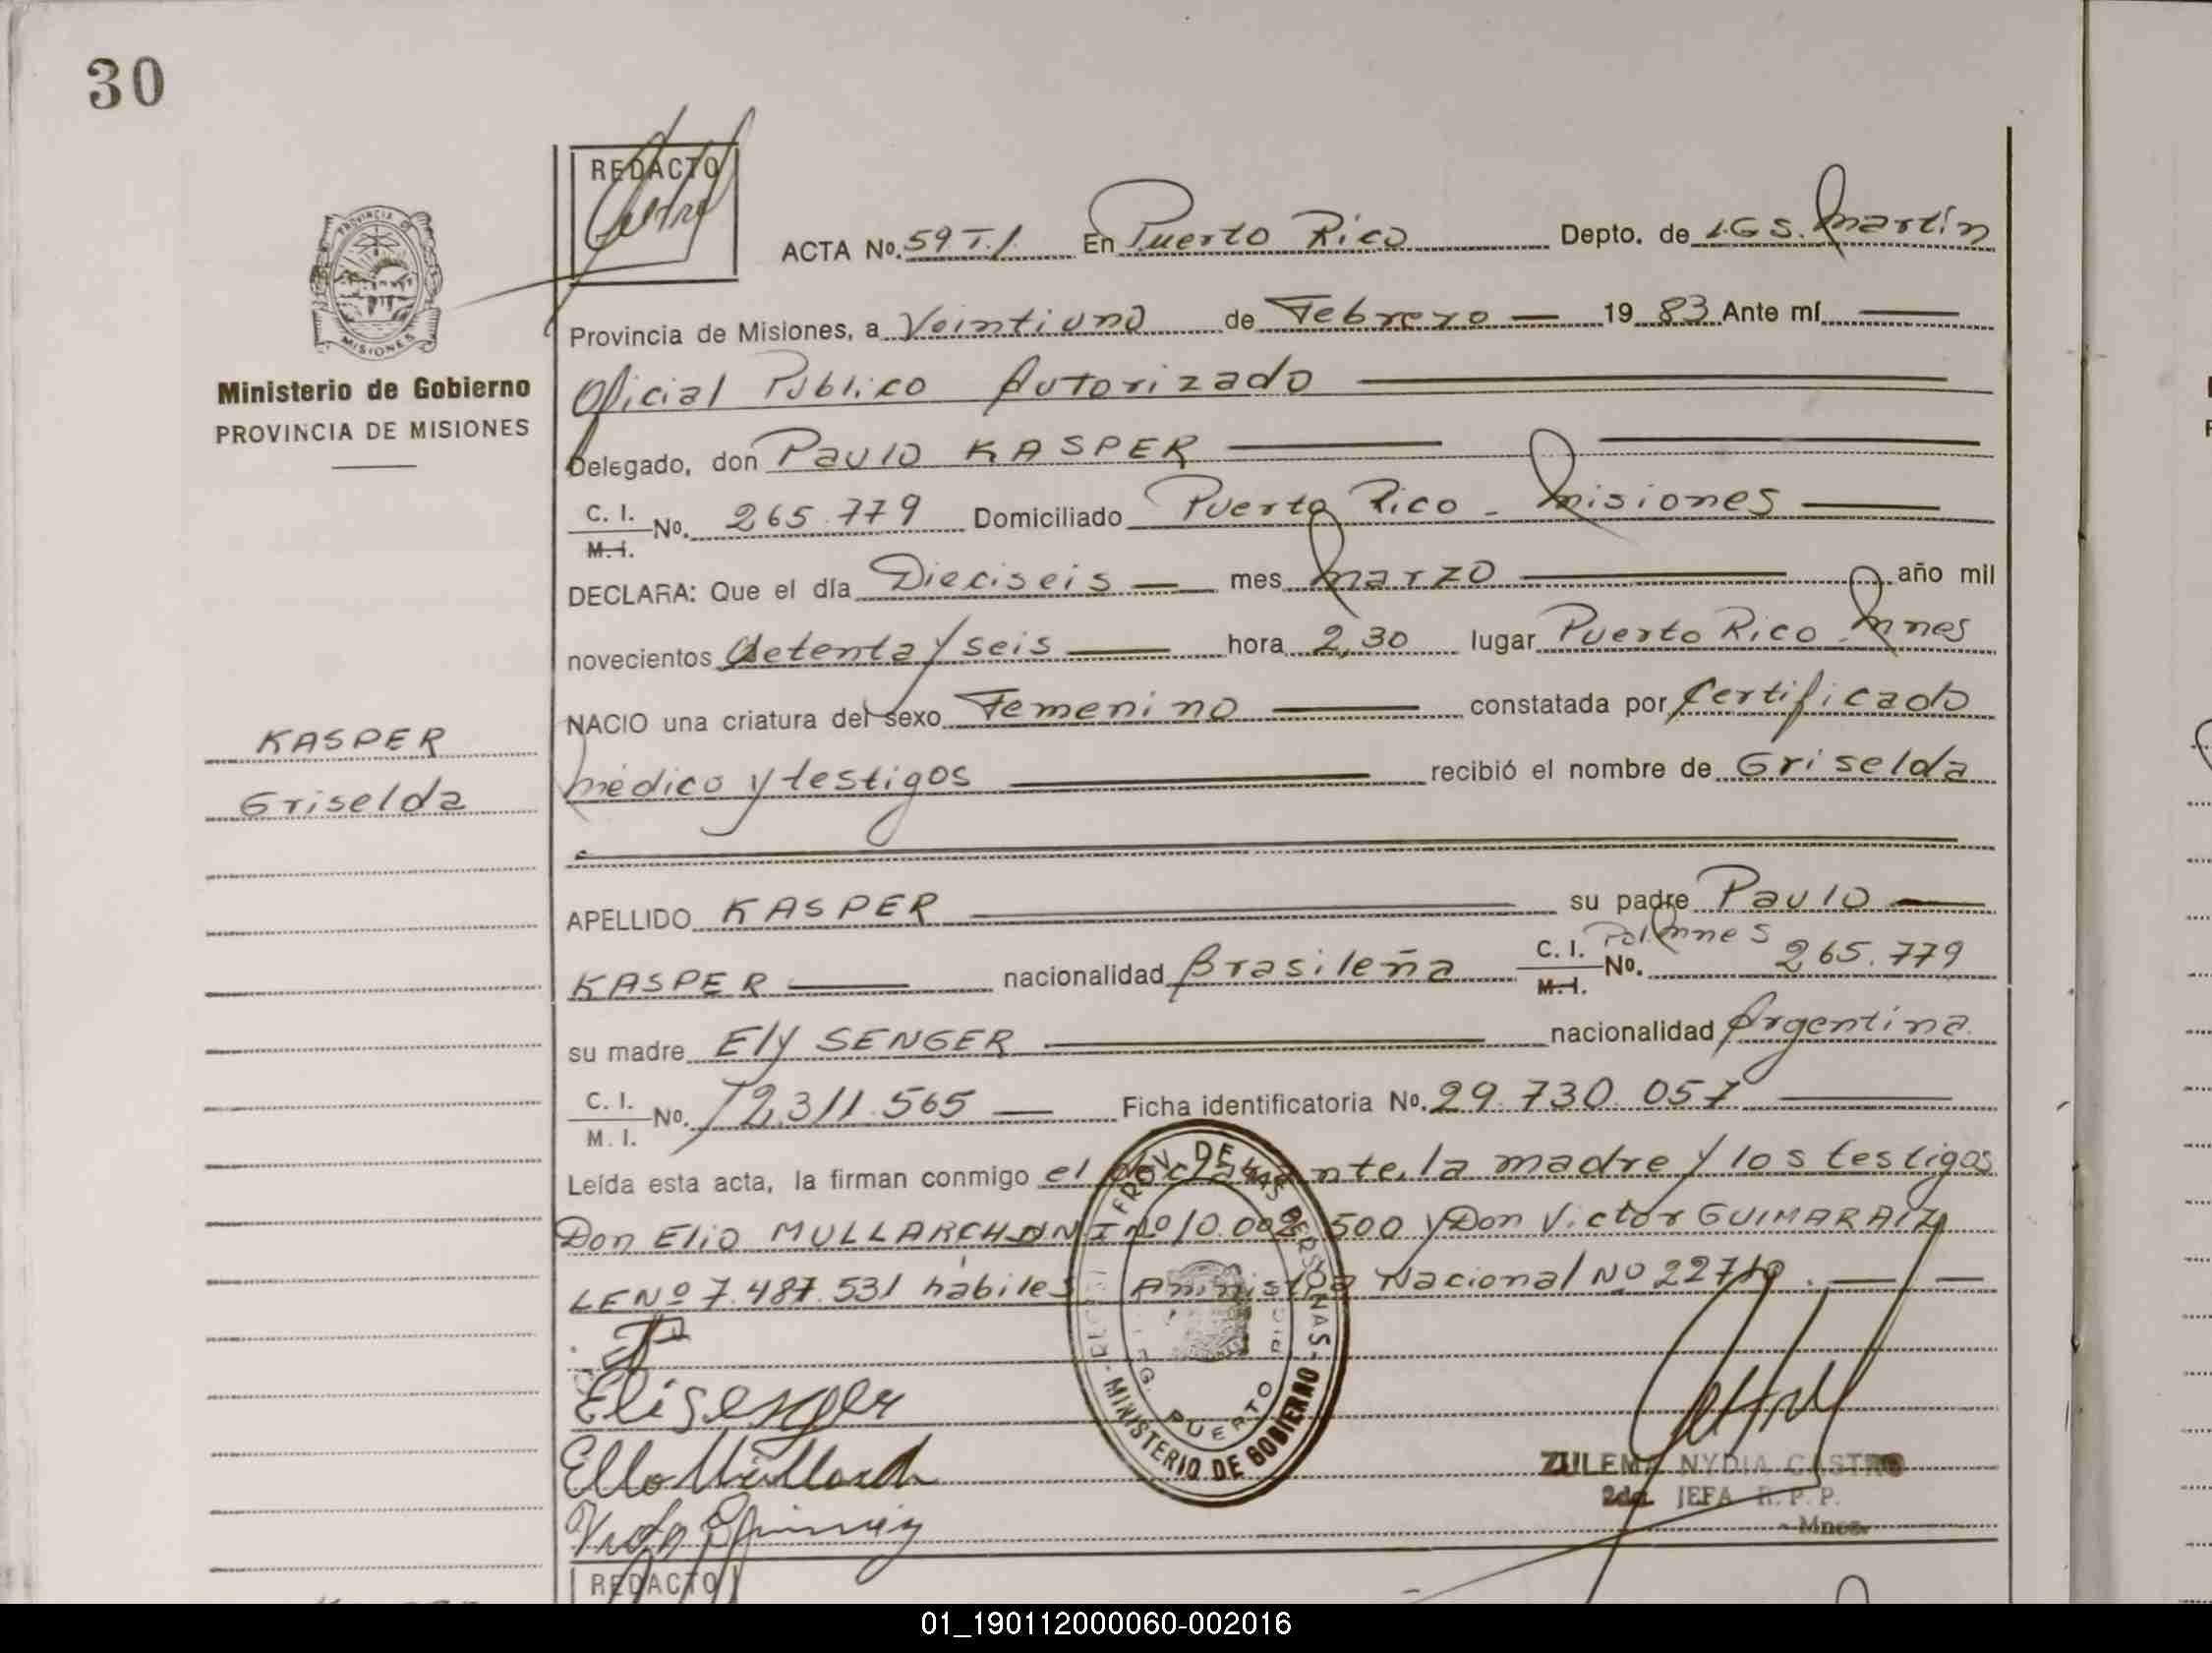 30
REDACTO
ACTA No. 59 T. 1. En Puerto Rico Depto. de L.G S. Martín
PROVINCIA DE
MISIONES
Ministerio de Gobierno
PROVINCIA DE MISIONES
Provincia de Misiones, a Veintiuno de Febrero — 19 83 Ante mí —
Oficial Público Autorizado —
Delegado, don Paulo KASPER —
C. I. No. 265.779 Domiciliado Puerto Rico - Misiones —
M. I.
DECLARA: Que el día Dieciseis — mes Marzo — año mil
novecientos Setenta y seis — hora 2,30 lugar Puerto Rico - Mnes
NACIO una criatura del sexo Femenino — constatada por Certificado
médico y testigos — recibió el nombre de Griselda
KASPER
Griselda
APELLIDO KASPER — su padre Paulo —
KASPER — nacionalidad Brasileña C. I. No. Pol. Mnes 265.779
M. I.
su madre Ely SENGER — nacionalidad Argentina
C. I. No. 12.311.565 — Ficha identificatoria No. 29.730.057 —
M. I.
Leída esta acta, la firman conmigo el declarante, la madre y los testigos
Don Elio MULLARCH DNI Nº 10.002.500 y Don Victor GUIMARAIZ
LE Nº 7.487.531 hábiles Amnistía Nacional Nº 22710. — —
REGIST. PROV. DE LAS PERSONAS - MINISTERIO DE GOBIERNO
PUERTO RICO
Eli Senger
Elio Müllarch
ZULEMA NYDIA CASTRO
2da. JEFA R. P. P.
- Mnes.
REDACTO
01_190112000060-002016